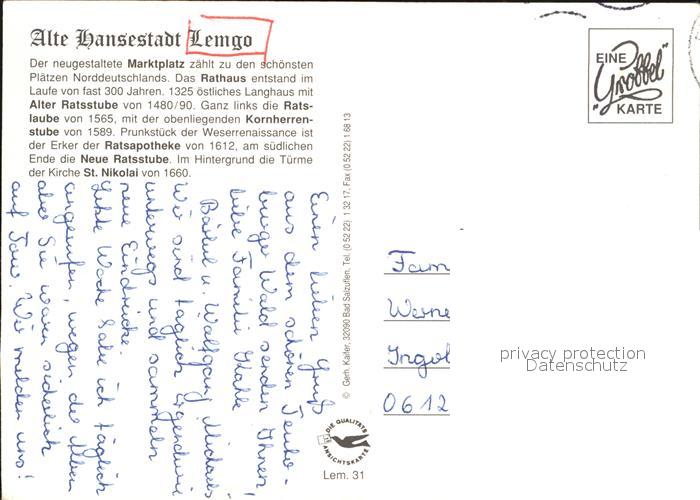 Alte Hansestadt Lemgo
Der neugestaltete Marktplatz zählt zu den schönsten
Plätzen Norddeutschlands. Das Rathaus entstand im
Laufe von fast 300 Jahren. 1325 östliches Langhaus mit
Alter Ratsstube von 1480/90. Ganz links die Rats-
laube von 1565, mit der obenliegenden Kornherren-
stube von 1589. Prunkstück der Weserrenaissance ist
der Erker der Ratsapotheke von 1612, am südlichen
Ende die Neue Ratsstube. Im Hintergrund die Türme
der Kirche St. Nikolai von 1660.
Einen lieben Gruß
aus dem schönen Teuto-
burger Wald senden Ihnen,
liebe Familie
Bärbel u. Wolfgang Michaels
Wir sind täglich irgendwie
unterwegs und sammeln
neue Eindrücke.
Letzte Woche habe ich täglich
angerufen, wegen der
aber Sie waren sicherlich
auf Tour. Wir melden uns!
© Gerh. Kaifer, 32090 Bad Salzuflen, Tel. (0 52 22) 1 32 17, Fax (0 52 22) 1 68 13
DIE QUALITÄTS
ANSICHTSKARTE
Lem. 31
EINE
"Grobbel"
KARTE
Fam
Werne
Ingol
0612
privacy protection
Datenschutz